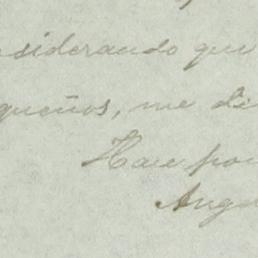 nsiderando que
queños, me di
Hace por
Ange